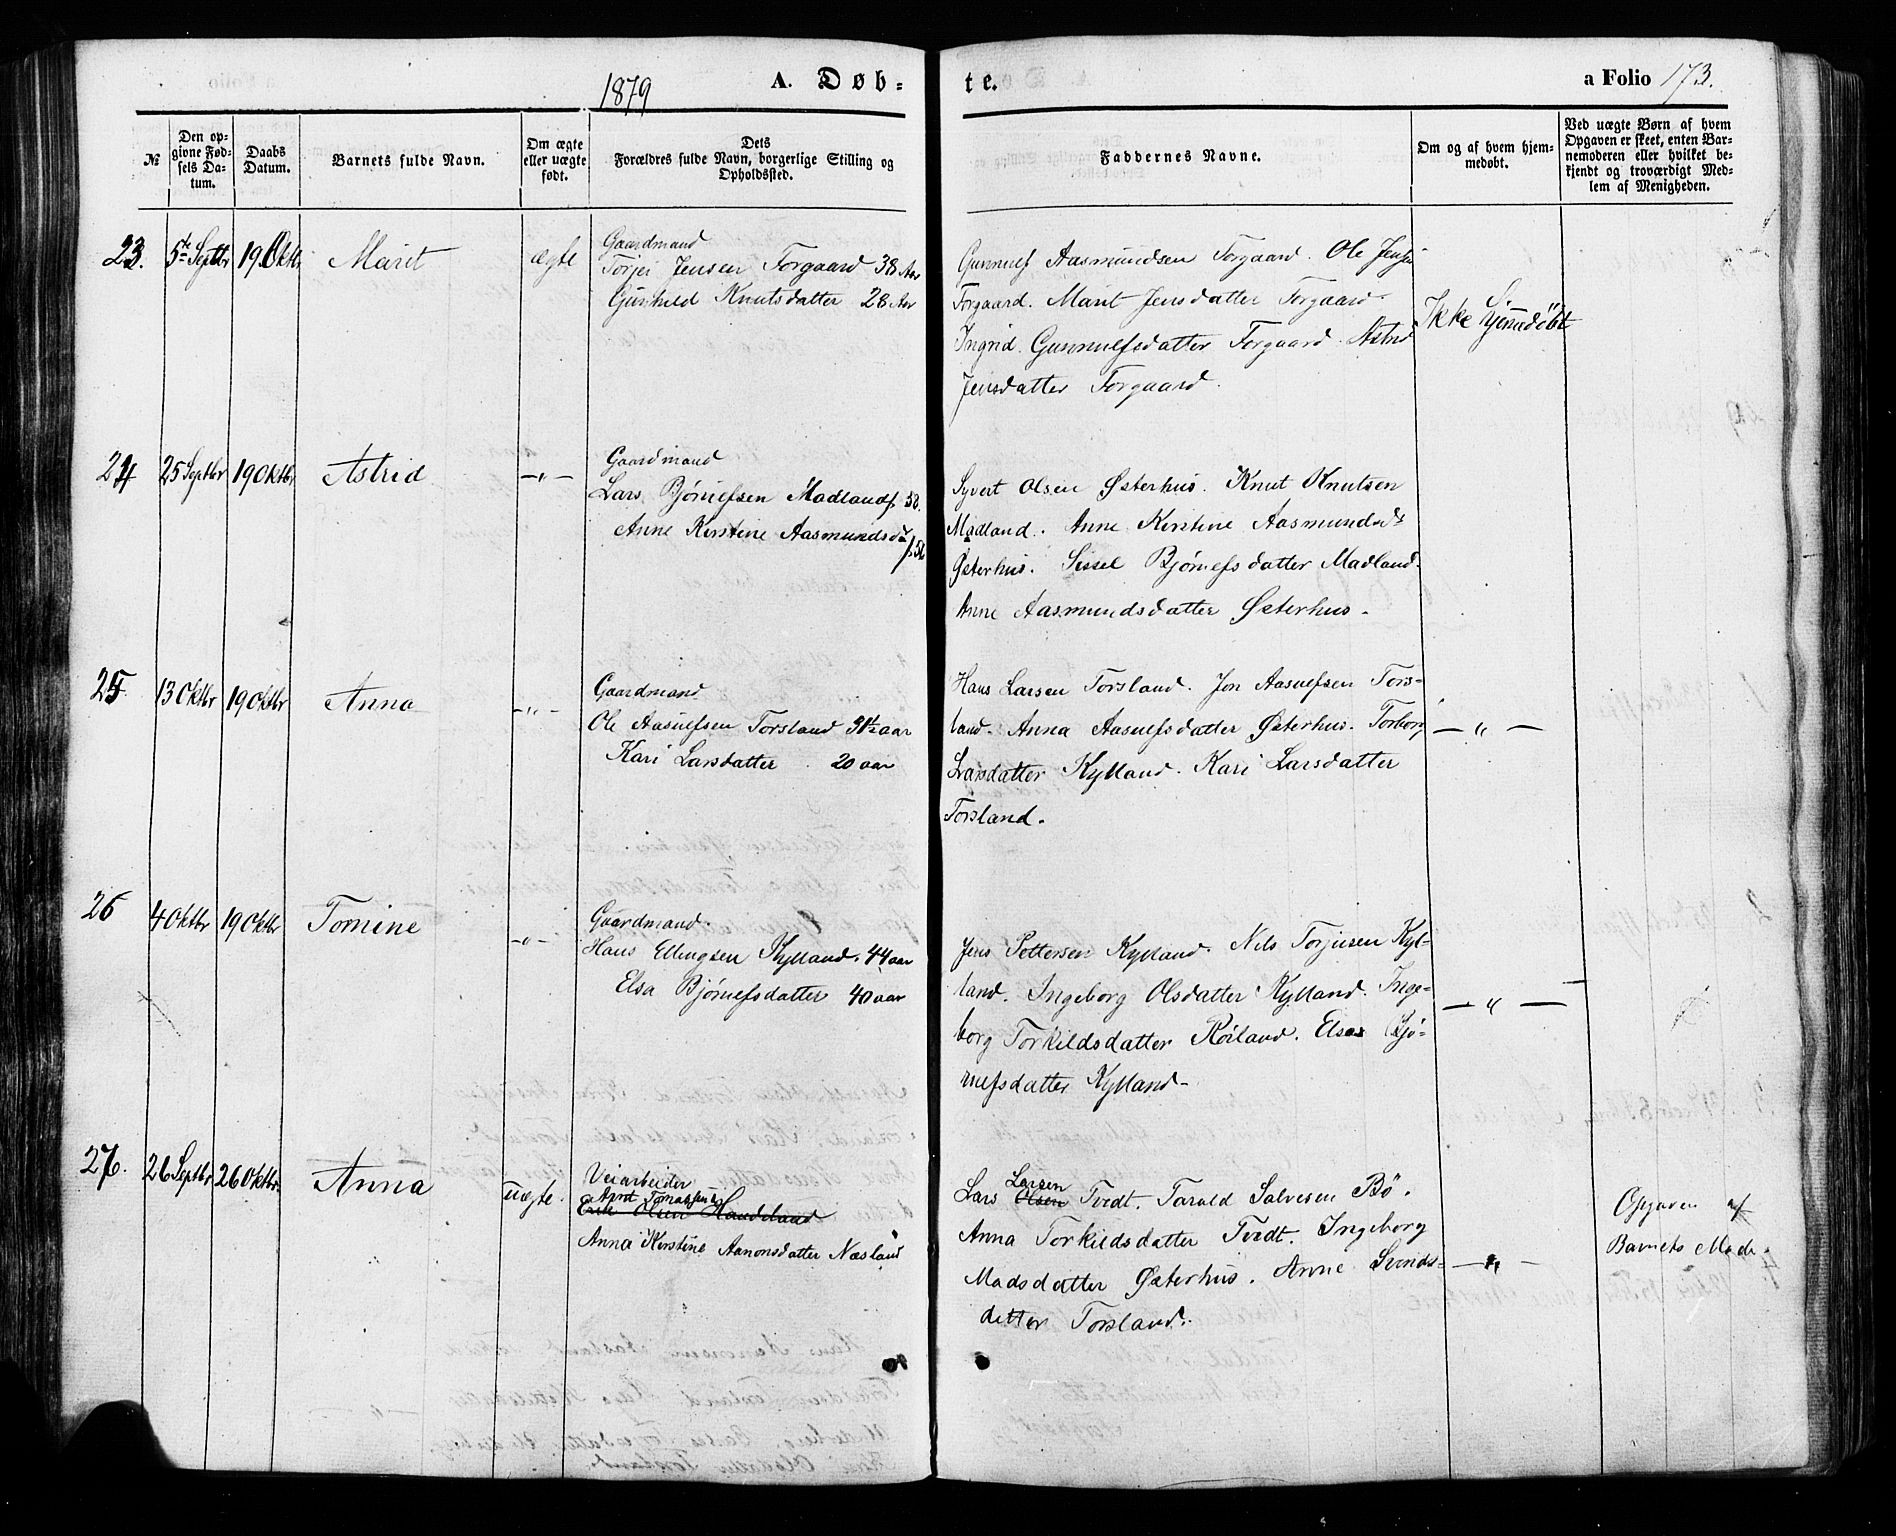 1879
A. Døb-
te.
a Folio 173.
№
Den op-
givne Fød-
sels Da-
tum.
Daabs
Datum.
Barnets fulde Navn.
Om ægte
eller uægte
født.
Dets
Forældres fulde Navn, borgerlige Stilling og
Opholdssted.
Faddernes Navne.
Om og af hvem hjem-
medøbt.
Ved uægte Børn af hvem
Opgaven er skeet, enten Bar-
nemoderen eller hvilket be-
kjendt og troværdigt Med-
lem af Menigheden.
23. 5te Septbr 19 Oktbr Marit ægte
Gaardmand
Torjei Jensen Torgaard 38 Aar
Gunhild Knutsdatter 28 Aar
Gunnulf Aasmundsen Torgaard. Ole Jensen
Torgaard. Marit Jensdatter Torgaard.
Ingrid Gunnulfsdatter Torgaard. Astrid
Jensdatter Torgaard.
Ikke hjemmedöbt
24 25 Septbr 19 Oktbr Astrid —„—
Gaardmand
Lars Bjørnefsen Madland f.
Anne Kirstine Aasmundsd
Syvert Olsen Østerhus. Knut Knutsen
Madland. Anne Kirstine Aasmundsdr
Østerhus. Sissel Bjørnefsdatter Madland.
Anne Aasmundsdatter Østerhus.
25 13 Oktbr 19 Oktbr Anna —„—
Gaardmand
Ole Aasulfsen Torsland 31½ aar
Kari Larsdatter 20 aar
Hans Larsen Torsland. Jon Aasulfsen Tors-
land. Anna Aasulfsdatter Østerhus. Torborg
Larsdatter Kylland. Kari Larsdatter
Torsland.
— „ —
26 4 Oktbr 19 Oktbr Tomine —„—
Gaardmand.
Hans Ellingsen Kylland. 44 aar
Elsa Bjørnefsdatter 40 aar
Jens Pettersen Kylland. Nils Torjusen Kyl-
land. Ingeborg Olsdatter Kylland. Inge-
borg Torkildsdatter Röiland. Elsa Bjö-
rnefsdatter Kylland-
— „ —
27. 26 Septbr 26 Oktbr. Anna uægte.
Veiarbeider
Arnt Tomassen
Erik Olsen Handeland
Anna Kirstine Aanonsdatter Næsland
Larsen
Lars Olsen Tvedt. Tarald Salvesen Bö.
Anna Torkildsdatter Tvedt. Ingeborg
Madsdatter Østerhus. Anne Svends-
datter Torsland.
— „ —
Opgaven af
Barnets Mode